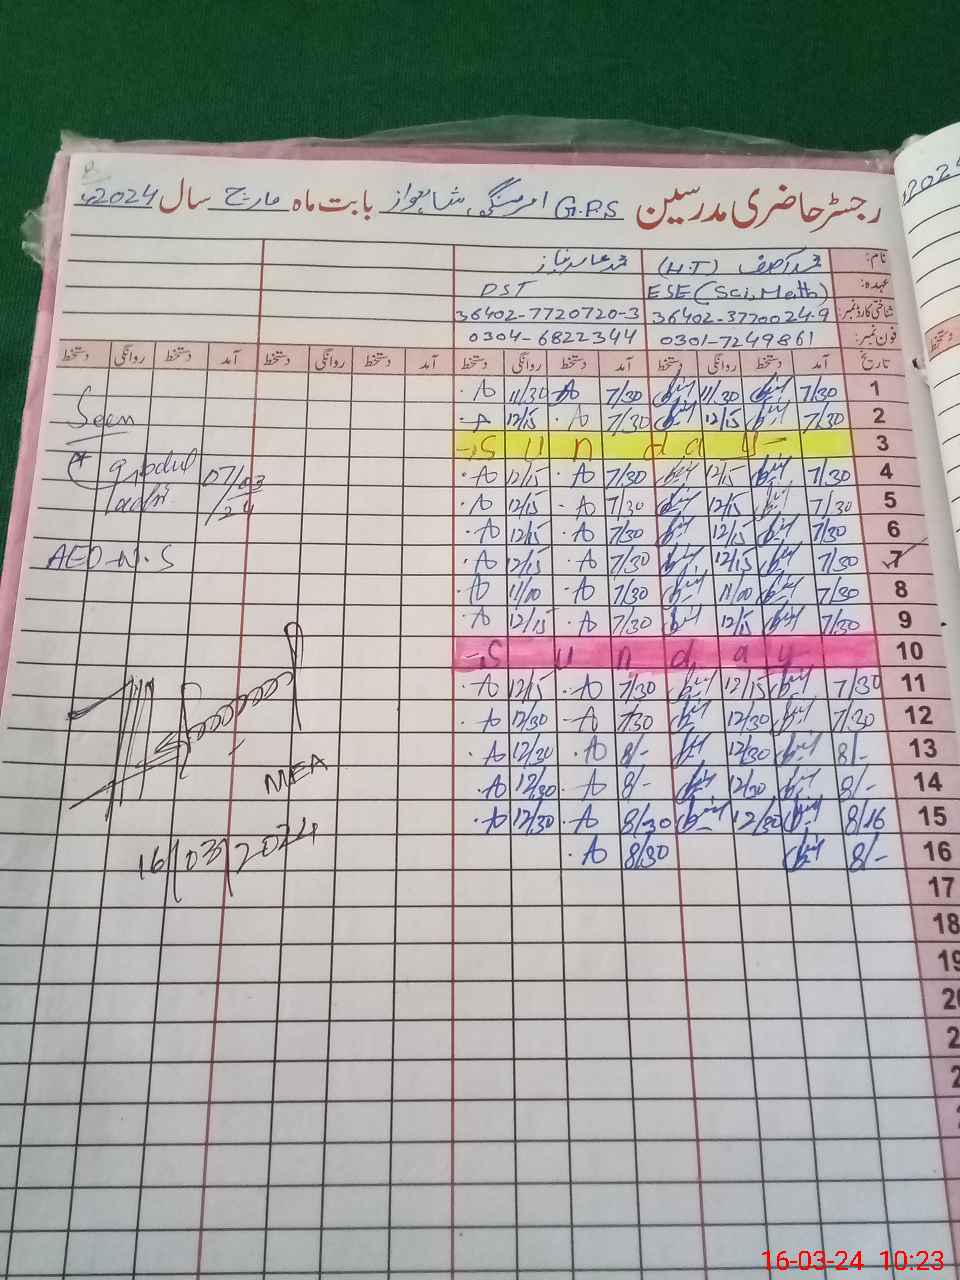 رجسٹر حاضری مدرسین G.P.S امرسنگھ شاہنواز بابت ماہ مارچ سال 2024ء
نام: محمد آصف (H.T) محمد عابد نیاز
عہدہ: ESE (Sci, Math) PST
شناختی کارڈ نمبر: 36402-3770024-9 36402-7720720-3
فون نمبر: 0301-7249861 0304-6822344
تاریخ آمد دستخط روانگی دستخط آمد دستخط روانگی دستخط آمد دستخط روانگی دستخط آمد دستخط روانگی دستخط
1 7/30 11/30 7/30 A 11/30 A
2 7/30 12/15 7/30 A 12/15 A
3 Sunday
4 7/30 12/15 7/30 A 12/15 A
5 7/30 12/15 7/30 A 12/15 A
6 7/30 12/15 7/30 A 12/15 A
7 7/30 12/15 7/30 A 12/15 A
8 7/30 11/00 7/30 A 11/00 A
9 7/30 12/15 7/30 A 12/15 A
10 Sunday
11 7/30 12/15 7/30 A 12/15 A
12 7/30 12/30 7/30 A 12/30 A
13 8/- 12/30 8/- A 12/30 A
14 8/- 12/30 8/- A 12/30 A
15 8/16 12/30 8/30 A 12/30 A
16 8/- 8/30 A
17
18
19
20
Seen
07/03/24
AEO-N.S
MEA
16/03/2024
2024
دستخط
16-03-24 10:23